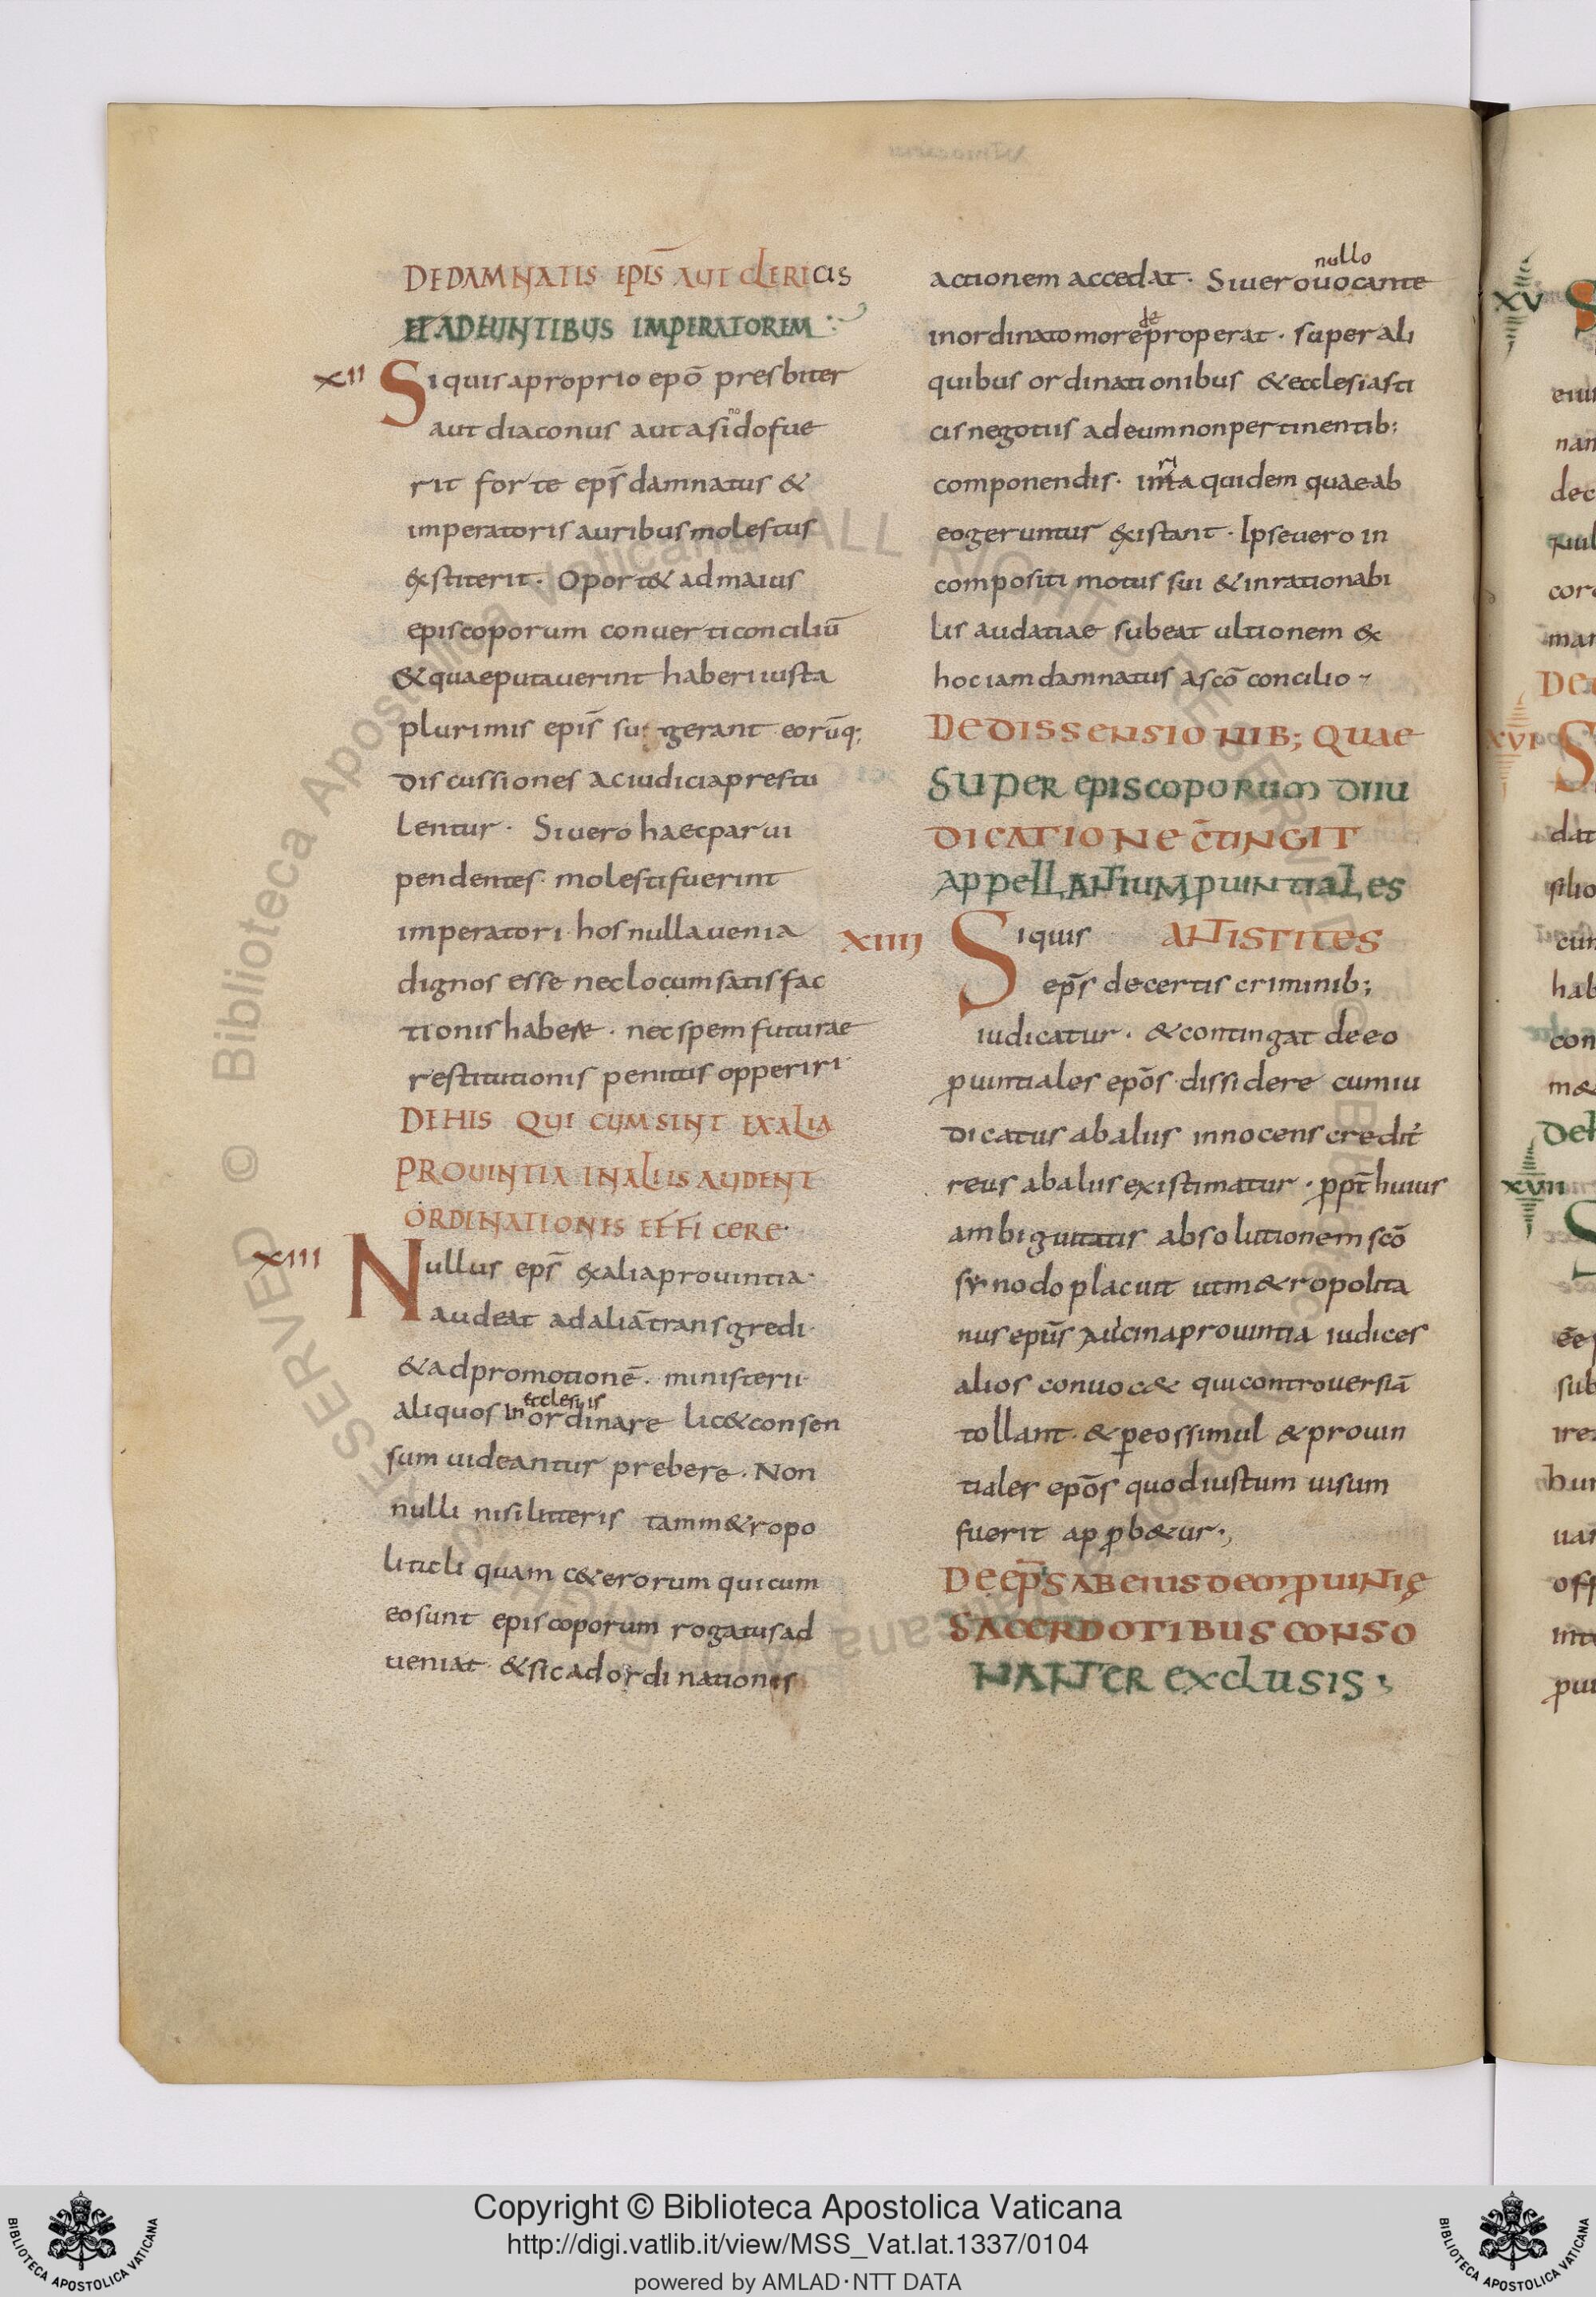 DEDAMNATIS EPIS̄ AUT CLERICIS
ET ADEUNTIBUS IMPERATOREM
XII Si quis a proprio epō presbiter
aut diaconus aut a sinōdo fue
rit forte eps̄ damnatus &
imperatoris auribus molestus
exstiterit. Oport& ad maius
episcoporum conuerti conciliū
& quae putauerint haberi iusta
plurimis epis̄ suggerant eorūq;
discussiones ac iudicia prestu
lentur. Si uero haec parui
pendentes molesti fuerint
imperatori hos nulla uenia
dignos esse nec locum satisfac
tionis habere. nec spem futurae
restitutionis penitus opperiri
DE HIS QUI CUM SINT EX ALIA
PROUINTIA IN ALIIS AUDENT
ORDINATIONIS EFFICERE
XIII Nullus eps̄ ex alia prouintia
audeat ad aliā transgredi
& ad promotionē. ministerii
aliquos in ecclesiis ordinare lic& consen
sum uideantur prebere. Non
nulli nisi litteris tam m&ropo
liticli quam c&erorum qui cum
eo sunt episcoporum rogatus ad
ueniat & sic ad ordinationis
actionem accedat. Si uero nullo uocante
inordinato more deproperat. super ali
quibus ordinationibus & ecclesiasti
cis negotiis ad eum non pertinentib;
componendis. irrita quidem quae ab
eo geruntur existant. Ipse uero in
compositi motus sui & inrationabi
lis audatiae subeat ultionem ex
hoc iam damnatus a scō concilio
DE DISSENSIONIB; QUAE
SUPER EPISCOPORUM DIIU
DICATIONE CŌTINGIT
APPELLANTIUM PUINTIALES
XIIII Si quis ANTISTITES
eps̄ de certis criminib;
iudicatur. & contingat de eo
puintiales epōs dissidere cum iu
dicatus ab aliis innocens credit
reus ab aliis existimatur. ppt̄ huius
ambiguitatis absolutionem scō
synodo placuit ut m&ropolita
nus epūs a uicina prouintia iudices
alios conuoc& qui controuersiā
tollant. & p eos simul & prouin
tiales epōs quod iustum uisum
fuerit app b&ur.
DE EPS̄ AB EIUSDEM PUINTIĘ
SACERDOTIBUS CONSO
NANTER EXCLUSIS;
XV
XVI
XVII
Copyright © Biblioteca Apostolica Vaticana
http://digi.vatlib.it/view/MSS_Vat.lat.1337/0104
powered by AMLAD·NTT DATA
BIBLIOTECA APOSTOLICA VATICANA
BIBLIOTECA APOSTOLICA VATICANA